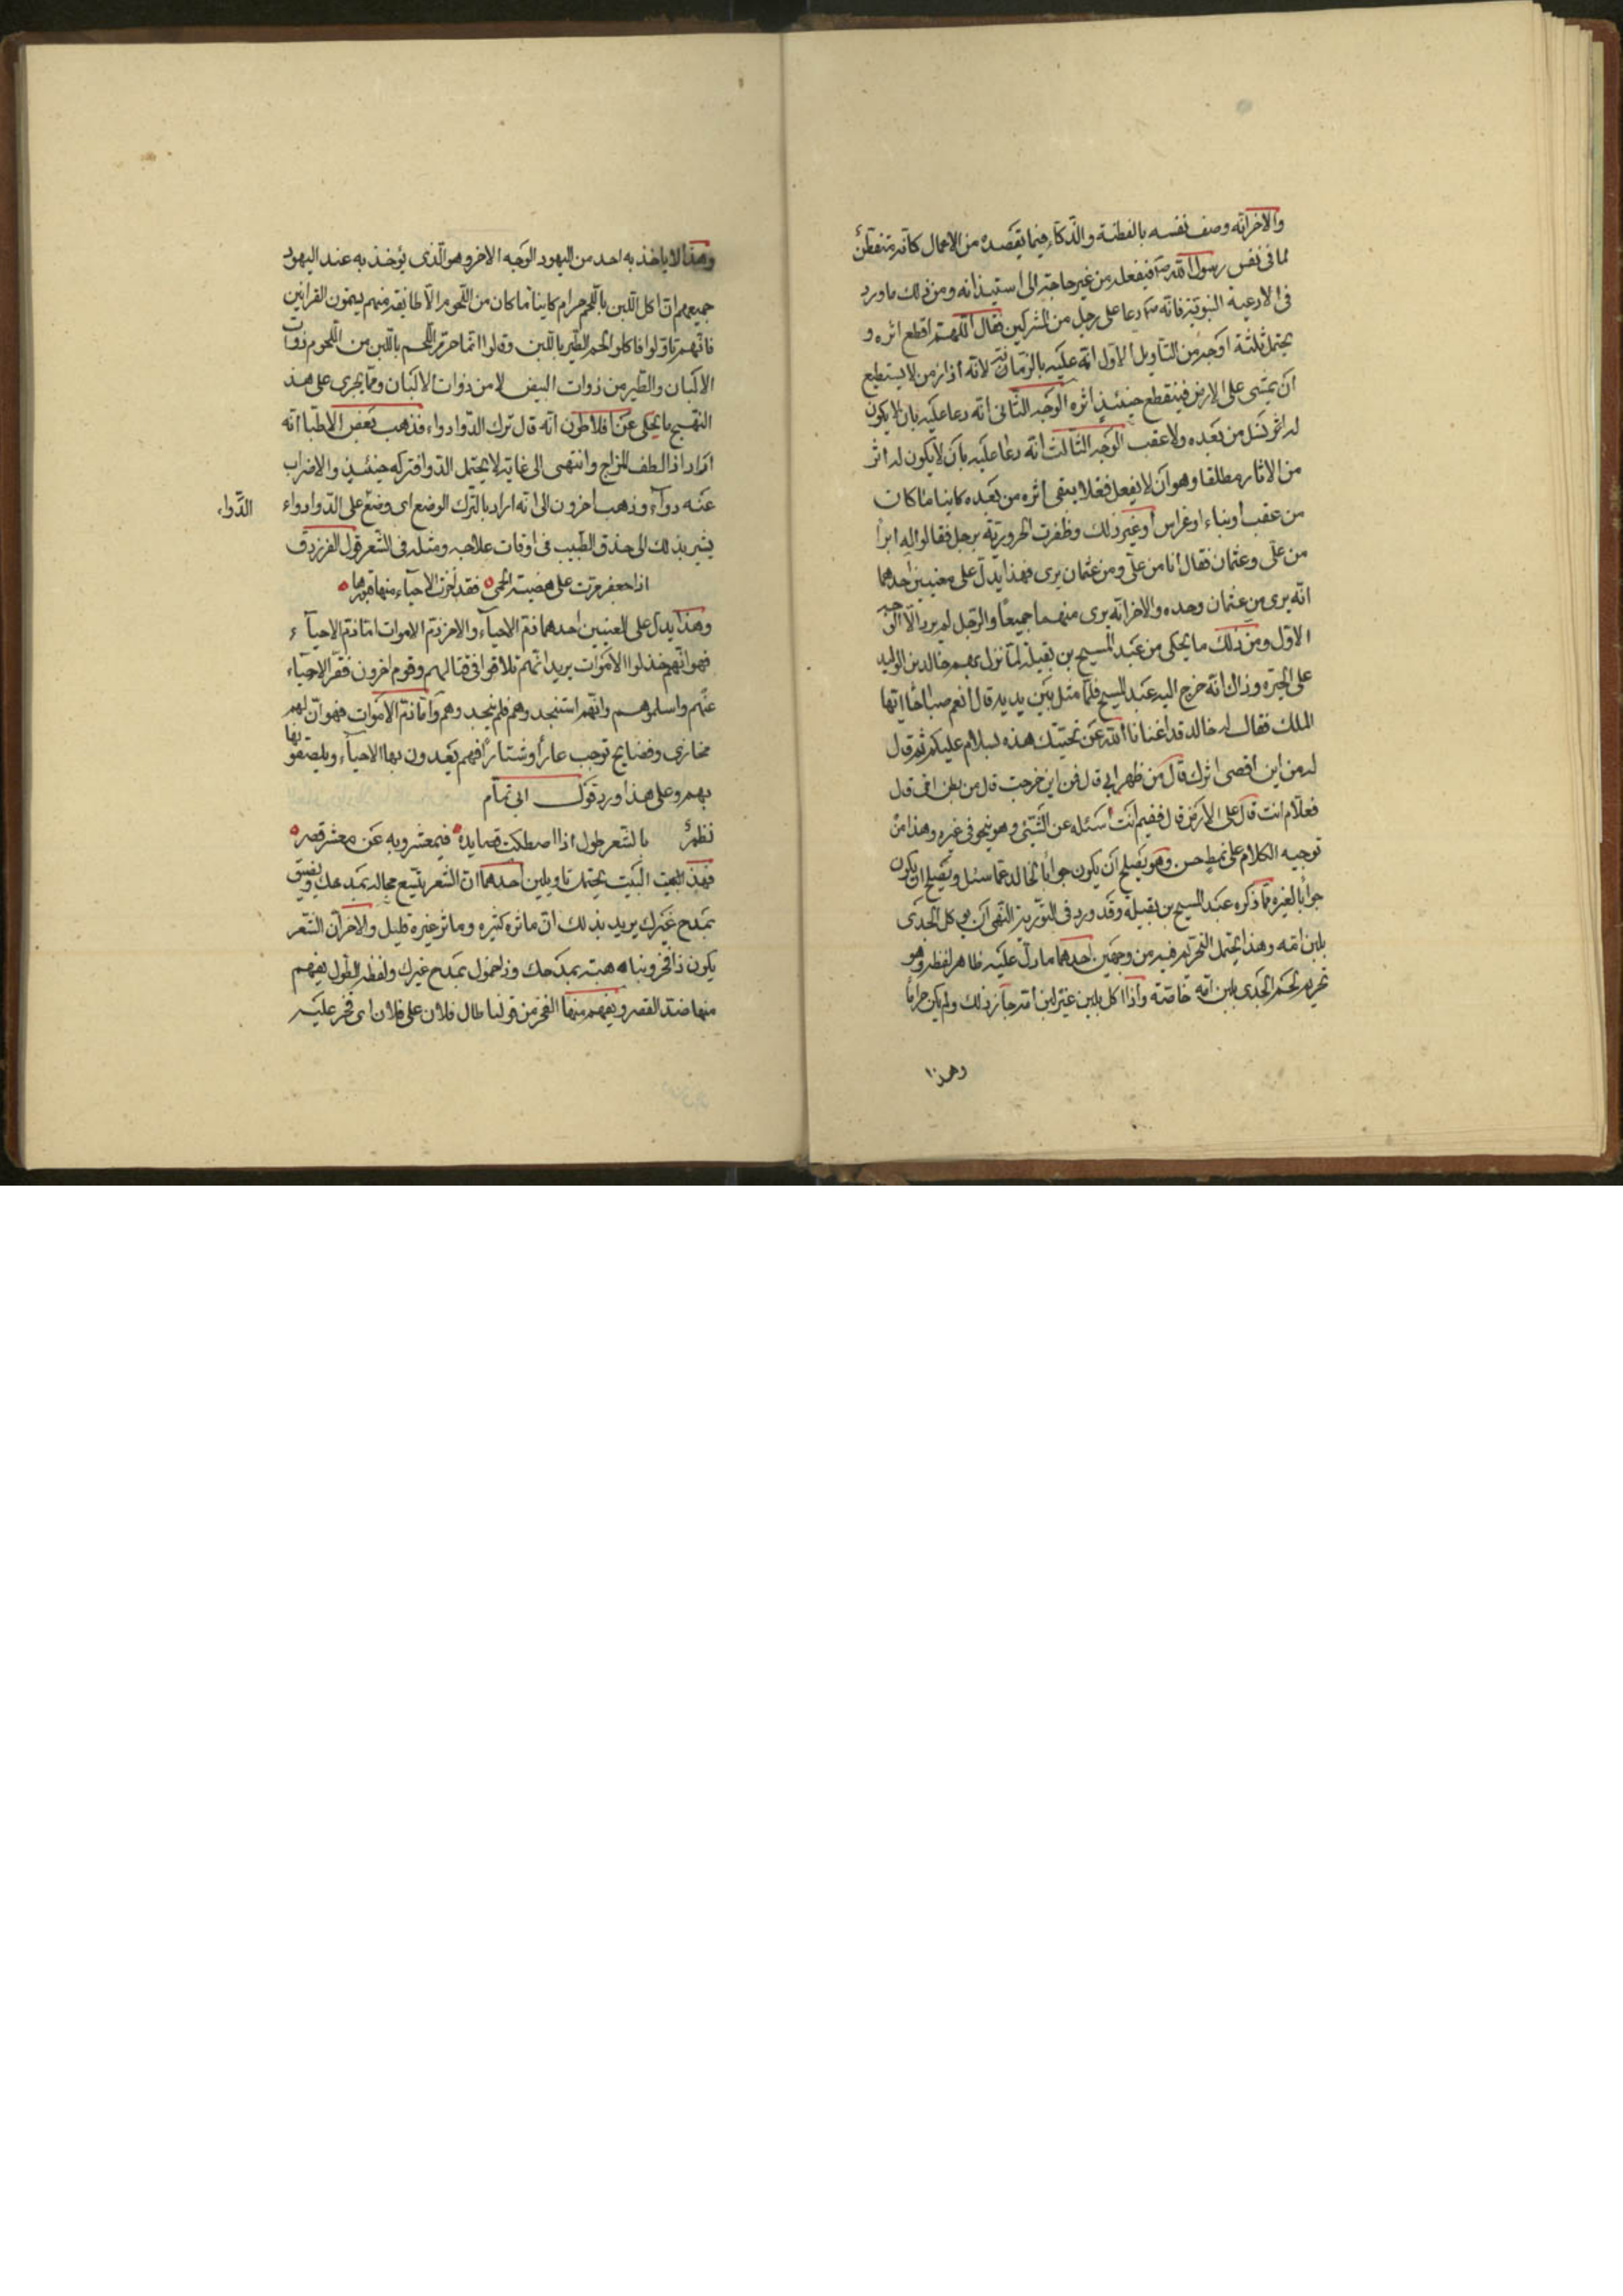 والاخر انّه وصف نفسه بالفطنة والذّكاء فيما يقصده من الاعمال كانّه متفطّن
لما فى نفس رسول الله صم فيفعله من غير حاجته الى استيذانه ومن ذلك ما ورد
فى الادعية النبويّة فانّه صم دعا على رجل من المشركين فقال اللّهمّ اقطع اثره و
يحتمل ثلثة اوجه من التأويل الاوّل انّه دعا عليه بالزمانة لانّه اذا زمن لا يستطيع
ان يمشى على الارض فينقطع حينئذ اثره الوجه الثّانى انّه دعا عليه بان لا يكون
له نسل من بعده ولا عقب الوجه الثّالث انّه دعا عليه بان لا يكون له اثر
من الاثار مطلقا وهو ان لا يفعل فعلا يبقى اثره من بعده كاينا ما كان
من عقب او بناء او غراس او غير ذلك وظفرت الحروريّة برجل فقالوا له ابرأ
من علىّ وعثمان فقال انا من علىّ ومن عثمان برى فهذا يدلّ على معنيين احدهما
انّه برى من عثمان وحده والاخر انّه برى منهما جميعًا والرّجل لم يرد الّا الوجه
الاوّل ومن ذلك ما يحكى من عبد المسيح بن بقيلة لمّا نزل بهم خالد بن الوليد
على الحيرة وذاك انّه خرج اليه عبد المسيح فلمّا مثل بين يديه قال انعم صباحًا ايّها
الملك فقال له خالد قد اغنانا الله عن تحيّتك هذه بسلام عليكم ثم قال
له من اين اقصى اثرك قال من ظهر ابى قال فمن اين خرجت قال من بطن امّى قال
فعلام انت قال على الارض قال ففيم انت اسئله عن الشّيئ وهو ينحو فى غيره وهذا من
توجيه الكلام على نمط حسن وهو يصلح ان يكون جوابًا لخالد عمّا سئل ويصلح ان يكون
جوابًا لغيره ممّا ذكره عبد المسيح بن بقيلة وقد ورد فى التّورية النّهى ان يوكل الجدى
بلبن امّه وهذا يحتمل التحريم فيه من وجهين احدهما ما دلّ عليه ظاهر لفظه وهو
تحريم لحم الجدى بلبن امّه خاصّة واذا اكل بلبن غير لبن امّه جاز ذلك ولم يكن حرامًا
وهذا
وهذا لا ياخذ به احد من اليهود الوجه الاخر وهو الّذى يؤخذ به عند اليهود
جميعهم انّ اكل اللّبن باللّحم حرام كاينا ما كان من اللّحوم الّا طايفة منهم يسمّون القرائين
فانّهم تاوّلوا فاكلوا لحم الطّير باللّبن وقالوا انّما حرّم اللّحم باللّبن من اللّحوم ذوات
الالبان والطّير من ذوات البيض لا من ذوات الالبان وممّا يجرى على هذا
النّهج ما يحكى عن افلاطون انّه قال ترك الدّوا دواء فذهب بعض الاطبّا انّه
اراد اذا لطف المزاج وانتهى الى غاية لا يحتمل الدّوا فتركه حينئذ والاضراب
عنه دواء وذهب اخرون الى انّه اراد بالتّرك الوضع اى وضع على الدّوا دواء
الدّواء
يشير بذلك الى حذق الطّبيب فى اوقات علاجه ومثله فى الشّعر قول الفرزدق
اذا جعفر مرّت على هضبة الحمى فقد اخزت الاحياء منها قبورها
وهذا يدلّ على المعنيين احدهما ذمّ الاحياء والاخر ذمّ الاموات امّا ذمّ الاحياء
فهو انّهم خذلوا الاموات يريد انّهم تلاقوا فى قتالهم وقوم اخرون ففرّ الاحياء
عنهم واسلموهم وانّهم استنجدوهم فلم ينجدوهم وامّا ذمّ الاموات فهو انّ لهم
مخازى وفضايح توجب عارًا وشنارًا فهم يعيدون بها الاحياء ويلصقونها
بهم وعلى هذا ورد قول ابى تمّام
نظم بالشّعر طول اذا اصطكت قصايده فى معشر وبه عن معشر قصر
فهذا البيت يحتمل تاويلين احدهما انّ الشّعر يتّسع مجاله بمدحك ويضيق
بمدح غيرك يريد بذلك انّ ماثره كثيره وماثر غيره قليل والاخر انّ الشّعر
يكون ذا فخر ونباهه بمدحك وذا خمول بمدح غيرك ولفظه الطّول يفهم
منها ضدّ القصر ويفهم منها الفخر من قولنا طال فلان على فلان اى فخر عليه